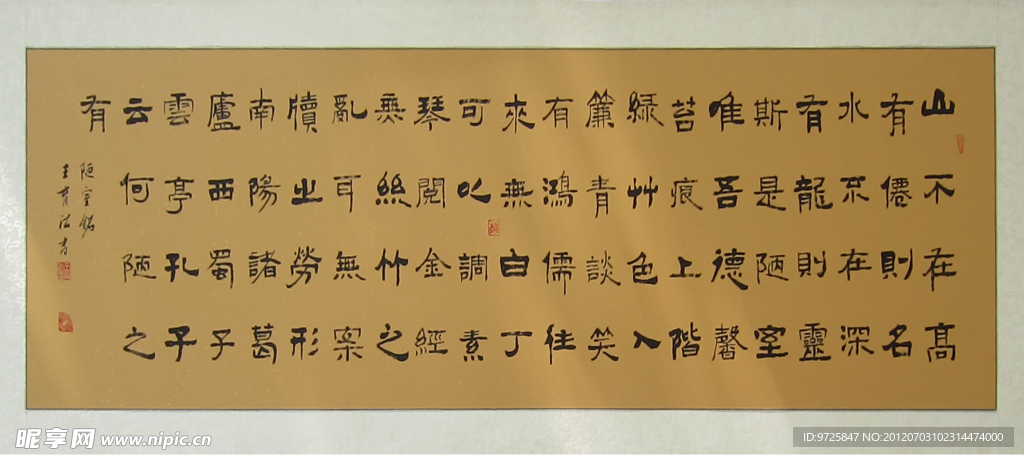 山不在高
有僊則名
水不在深
有龍則靈
斯是陋室
唯吾德馨
苔痕上階
綠艸色入
簾青談笑
有鴻儒往
來無白丁
可以調素
琴閱金經
無絲竹之
亂耳無案
牘之勞形
南陽諸葛
廬西蜀子
雲亭孔子
云何陋之
有
陋室銘
昵享网 www.nipic.cn
ID:9725847 NO:20120703102314474000